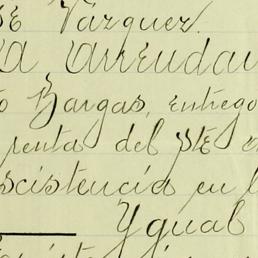 SE Vazquez.
A Arrendan
o Bargas, entrego
renta del STE
scistencia en l
Ygual